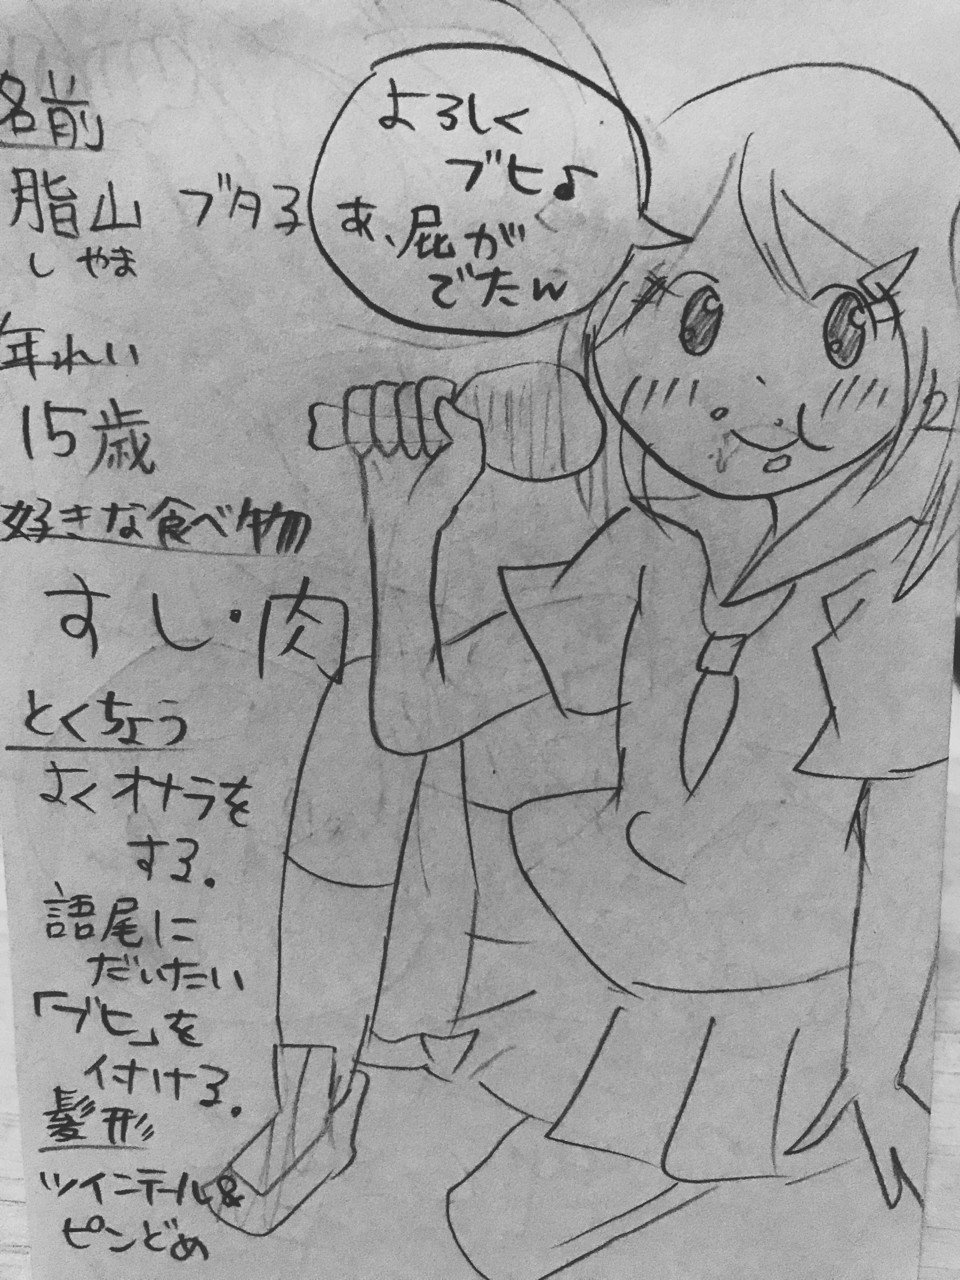 名前
脂山 ブタ子
しやま
年れい
15歳
好きな食べ物
すし・肉
とくちょう
よくオナラを
する。
語尾に
だいたい
「ブヒ」を
付ける。
髪形
ツインテール&
ピンどめ
よろしく
ブヒ♪
あ、屁が
でたw